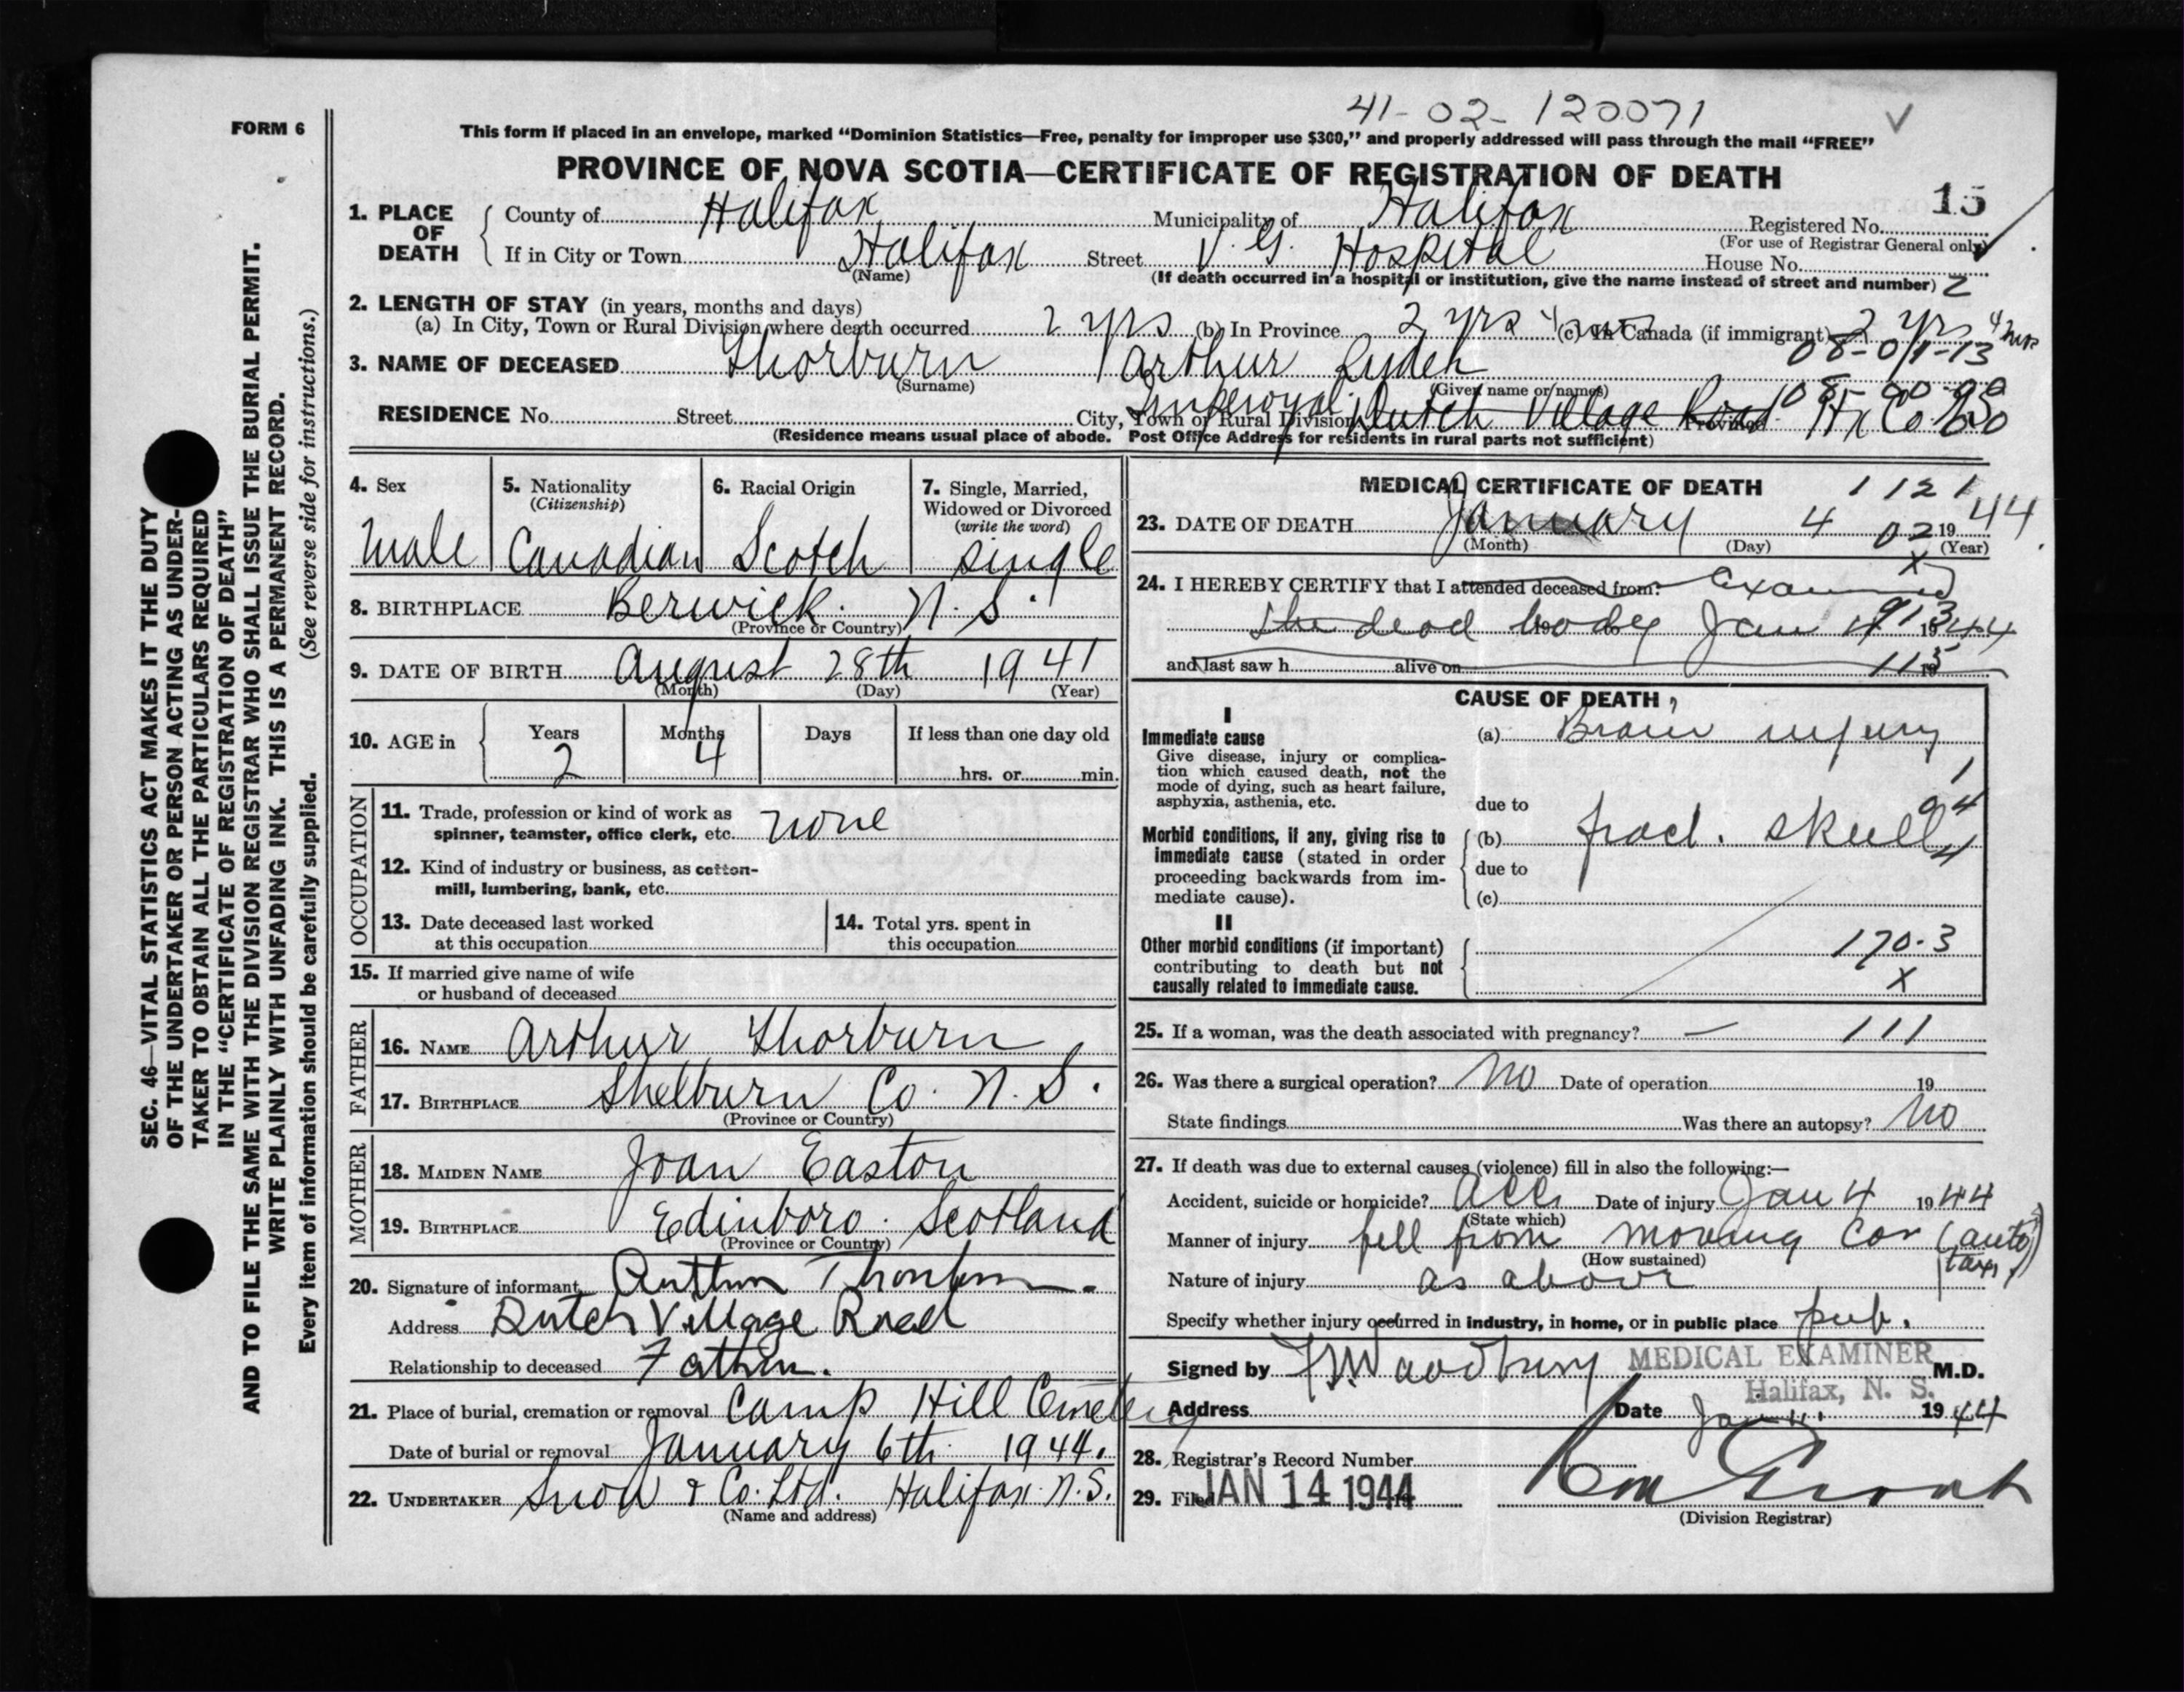 41-02-120071
FORM 6
This form if placed in an envelope, marked “Dominion Statistics—Free, penalty for improper use $300,” and properly addressed will pass through the mail “FREE”
PROVINCE OF NOVA SCOTIA—CERTIFICATE OF REGISTRATION OF DEATH
15
1. PLACE OF DEATH
County of Halifax Municipality of Halifax Registered No.
(For use of Registrar General only)
If in City or Town Halifax Street V. G. Hospital House No.
(Name) (If death occurred in a hospital or institution, give the name instead of street and number) 2
2. LENGTH OF STAY (in years, months and days)
(a) In City, Town or Rural Division where death occurred 2 yrs (b) In Province 2 yrs 4 (c) In Canada (if immigrant) 2 yrs 4
3. NAME OF DECEASED Thorburn Arthur
(Surname) (Given name or names)
RESIDENCE No. Street City, Town or Rural Division Imperoyal Dutch Village Road Hx Co
(Residence means usual place of abode. Post Office Address for residents in rural parts not sufficient)
4. Sex
Male
5. Nationality
(Citizenship)
Canadian
6. Racial Origin
Scotch
7. Single, Married, Widowed or Divorced
(write the word)
single
8. BIRTHPLACE Berwick. N. S.
(Province or Country)
9. DATE OF BIRTH August 28th 1941
(Month) (Day) (Year)
10. AGE in Years Months Days If less than one day old
2 4 hrs. or min.
OCCUPATION
11. Trade, profession or kind of work as
spinner, teamster, office clerk, etc. none
12. Kind of industry or business, as cotton-
mill, lumbering, bank, etc.
13. Date deceased last worked
at this occupation
14. Total yrs. spent in
this occupation
15. If married give name of wife
or husband of deceased
FATHER
16. NAME Arthur Thorburn
17. BIRTHPLACE Shelburn Co. N. S.
(Province or Country)
MOTHER
18. MAIDEN NAME Joan Easton
19. BIRTHPLACE Edinboro. Scotland
(Province or Country)
20. Signature of informant Arthur Thorburn
Address Dutch Village Road
Relationship to deceased Father.
21. Place of burial, cremation or removal Camp Hill Cemetery
Date of burial or removal January 6th 1944.
22. UNDERTAKER Snow & Co. Ltd. Halifax N.S.
(Name and address)
MEDICAL CERTIFICATE OF DEATH
23. DATE OF DEATH January 4 1944
(Month) (Day) (Year)
24. I HEREBY CERTIFY that I attended deceased from: examined
the dead body Jan 1944
and last saw h alive on 19
CAUSE OF DEATH
I
Immediate cause
Give disease, injury or complica-
tion which caused death, not the
mode of dying, such as heart failure,
asphyxia, asthenia, etc.
(a) Brain injury
due to
Morbid conditions, if any, giving rise to
immediate cause (stated in order
proceeding backwards from im-
mediate cause).
(b) fract. skull
due to
(c)
II
Other morbid conditions (if important)
contributing to death but not
causally related to immediate cause.
170.3
X
25. If a woman, was the death associated with pregnancy? — 111
26. Was there a surgical operation? No Date of operation 19
State findings Was there an autopsy? No
27. If death was due to external causes (violence) fill in also the following:—
Accident, suicide or homicide? Acc. Date of injury Jan 4 1944
(State which)
Manner of injury fell from moving car (auto taxi)
(How sustained)
Nature of injury as above
Specify whether injury occurred in industry, in home, or in public place pub.
Signed by Woodbury MEDICAL EXAMINER M.D.
Halifax, N. S.
Address Date Jan 1944
28. Registrar's Record Number
29. Filed JAN 14 1944
(Division Registrar)
SEC. 46—VITAL STATISTICS ACT MAKES IT THE DUTY
OF THE UNDERTAKER OR PERSON ACTING AS UNDER-
TAKER TO OBTAIN ALL THE PARTICULARS REQUIRED
IN THE “CERTIFICATE OF REGISTRATION OF DEATH”
AND TO FILE THE SAME WITH THE DIVISION REGISTRAR WHO SHALL ISSUE THE BURIAL PERMIT.
WRITE PLAINLY WITH UNFADING INK. THIS IS A PERMANENT RECORD.
Every item of information should be carefully supplied. (See reverse side for instructions.)